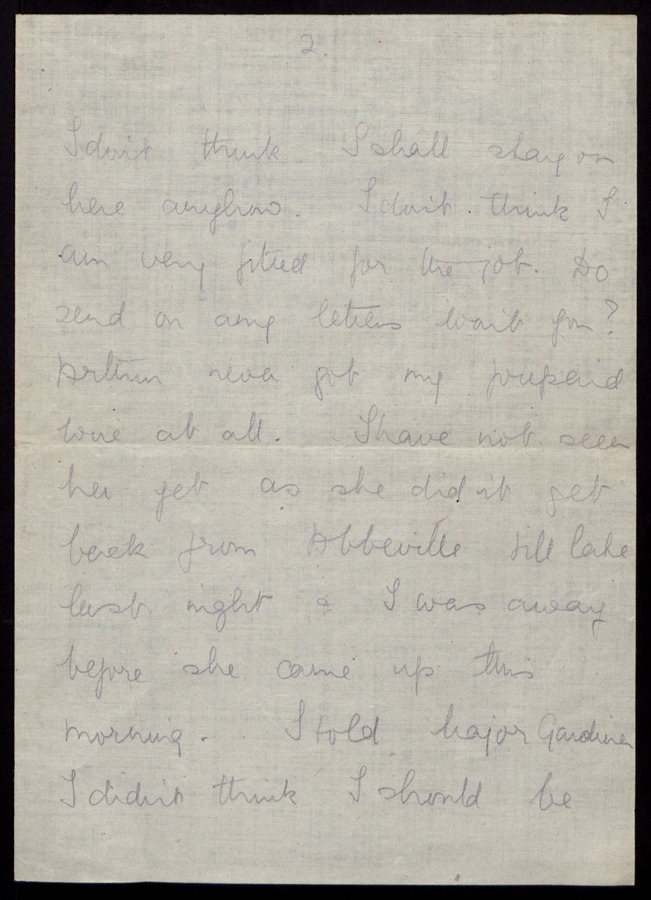 2.
I don't think I shall stay on
here anyhow. I don't think I
am very fitted for the job. Do
send on any letters won't you?
never got my prepaid
wire at all. I have not seen
her yet as she didn't get
back from Abbeville till late
last night & I was away
before she came up this
morning. I told Major Gardiner
I didn't think I should be